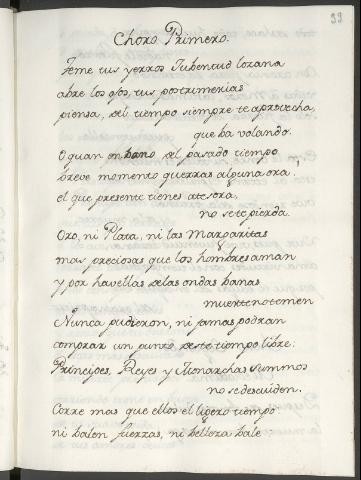 99
Choro Primero.
Teme tus yerros Iubentud lozana
abre los ojos, tus postrimerias
piensa, del tiempo siempre te aprovecha,
que ba volando.
O quan en bano del pasado tiempo
breve momento querras alguna ora;
el que presente tienes atesora,
no se te pierda.
Oro, ni Plata, ni las Margaritas
mas preciosas que los hombres aman
y por havellas de las ondas banas
muerte no temen
Nunca pudieron, ni jamas podran
comprar un punto de este tiempo libre:
Principes, Reyes y Monarchas summos
no se descuiden.
Corre mas que ellos el ligero tiempo
ni balen fuerzas, ni belleza bale